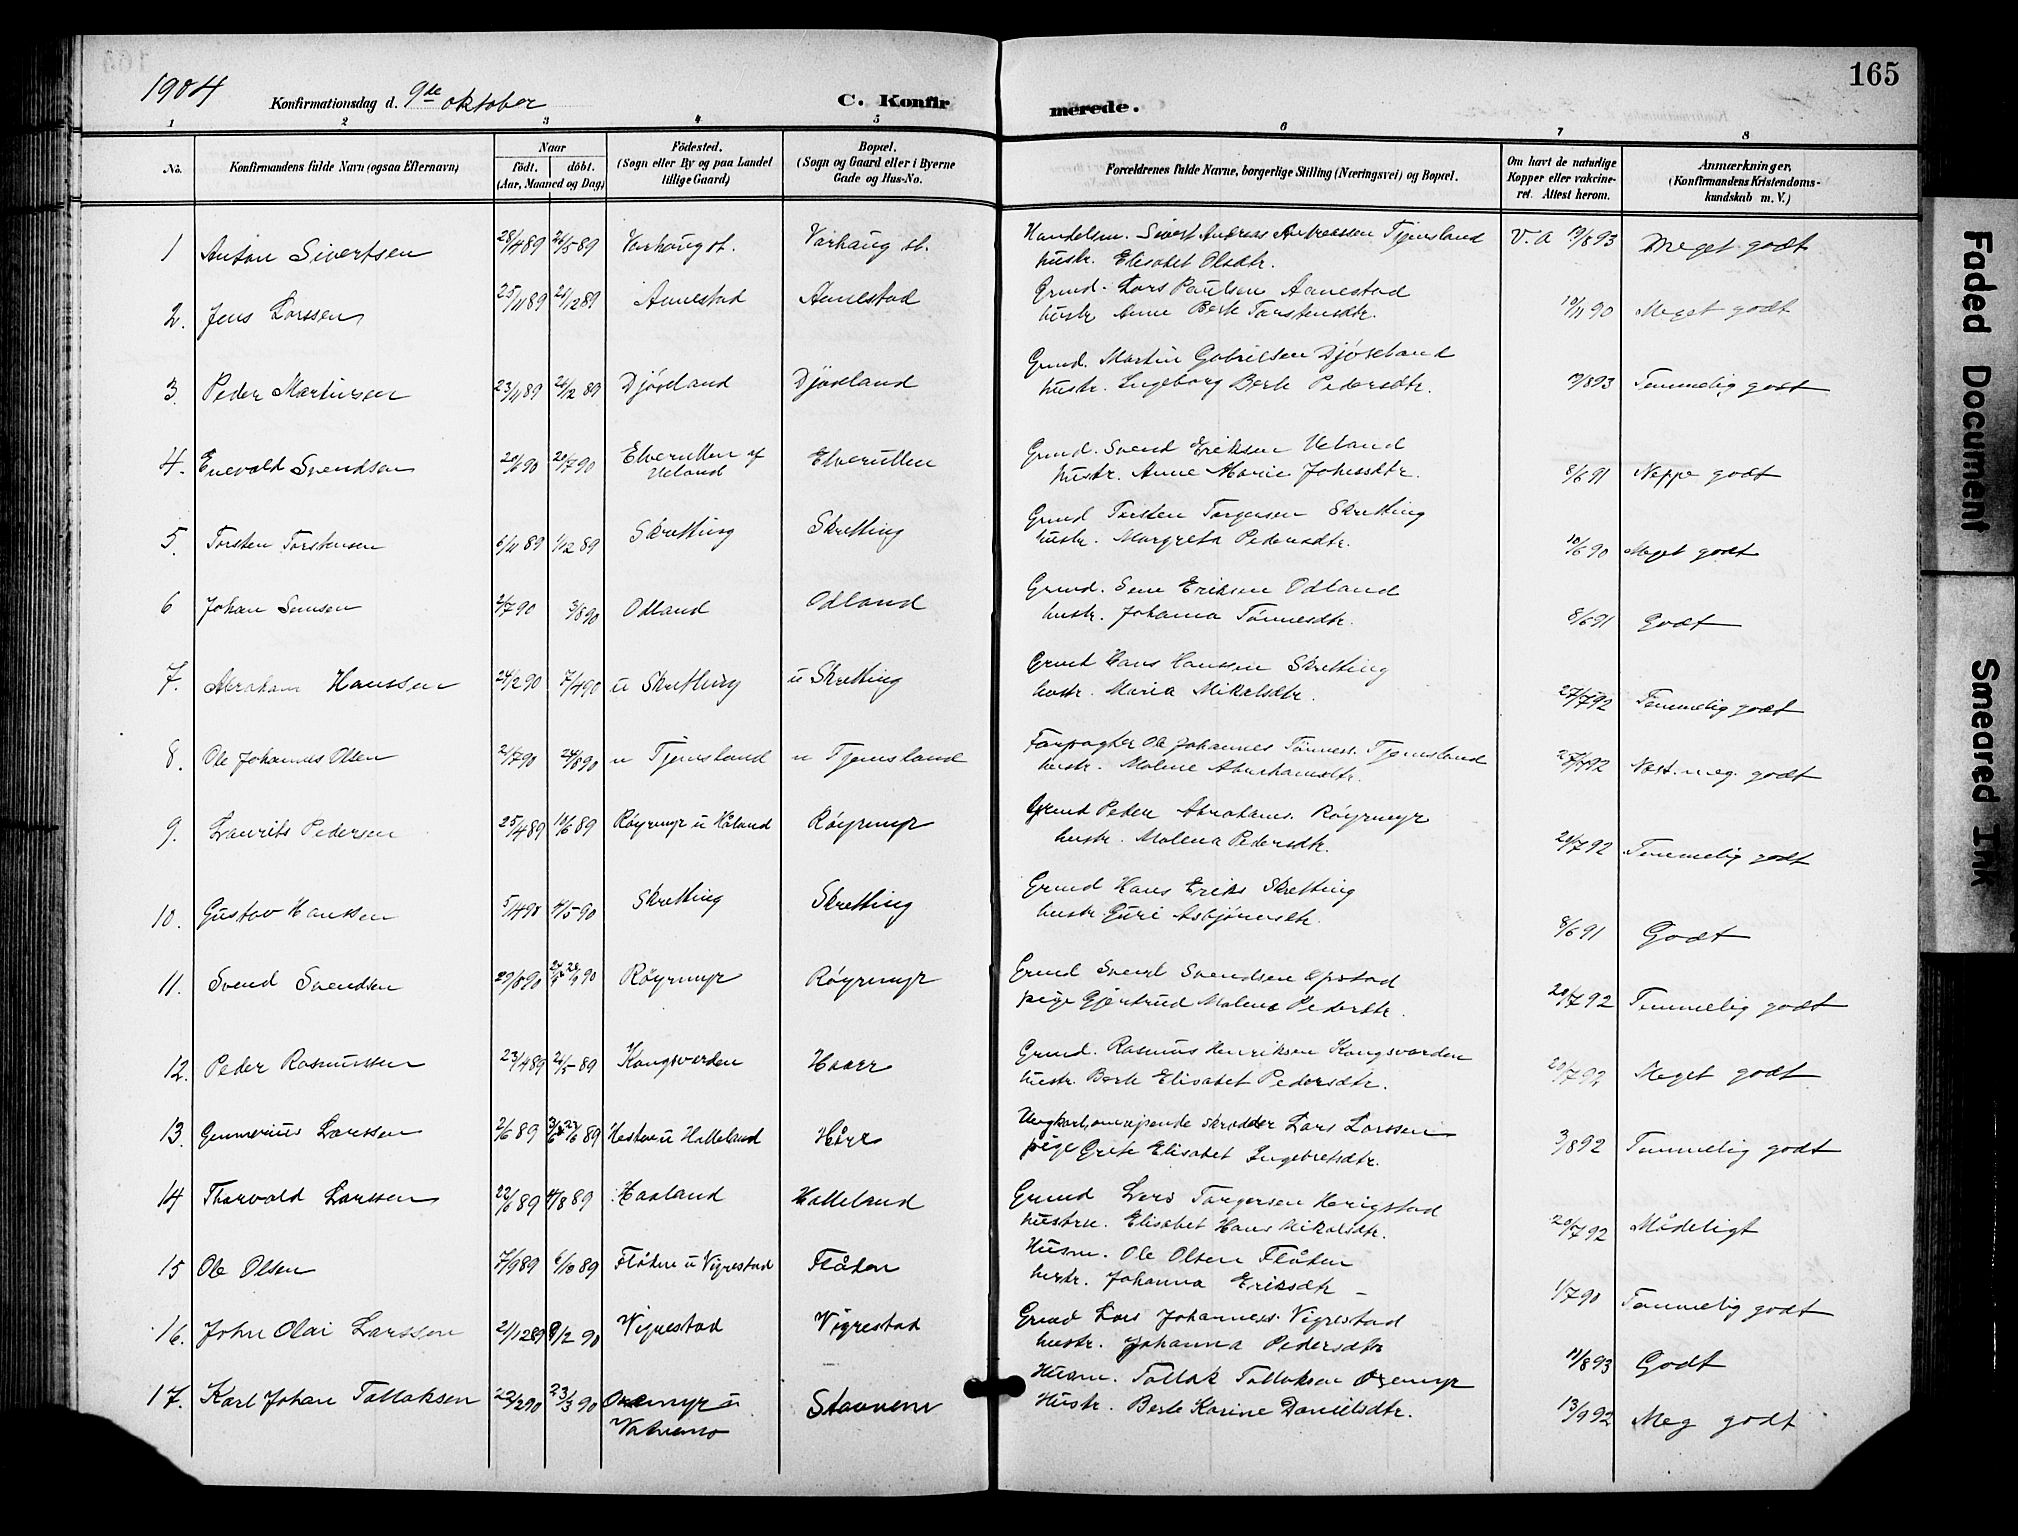 165
1904 Konfirmationsdag d. 9de oktober C. Konfirmerede.
1 2 3 4 5 6 7 8
No. Konfirmandens fulde Navn (ogsaa Efternavn) Naar födt. döbt. (Aar, Maaned og Dag) Födested. (Sogn eller By og paa Landet tillige Gaard) Bopæl. (Sogn og Gaard eller i Byerne Gade og Hus-No. Forældrenes fulde Navne, borgerlige Stilling (Næringsvei) og Bopæl. Om havt de naturlige Kopper eller vaccineret. Attest herom. Anmærkninger, (Konfirmandens Kristendomskundskab m. V.)
1 Anton Sivertsen 28/4 89 26/5 89 Varhaug st. Varhaug st. Handelsm. Sivert Andreas Andreassen Tjemsland V. A 19/8 93 Meget godt
hustr. Elisabet Olsdtr.
2. Jens Larssen 25/11 89 26/12 89 Aanestad Aanestad Grmd. Lars Paulsen Aanestad
hustr. Anne Berte Torstensdtr. 10/11 90 Meget godt
3. Peder Martinsen 23/11 89 26/12 89 Djöseland Djöseland Grmd. Martin Gabrielsen Djöseland
hustr. Ingeborg Berte Pedersdtr. 19/8 93 Temmelig godt
4. Enevald Svendsen 20/6 90 20/7 90 Elverullen af Ueland Elverullen Grmd. Svend Eriksen Ueland
hustr. Anne Marie Johnsdtr. 8/6 91 Neppe godt
5. Torsten Torstensen 6/11 89 1/12 89 Skretting Skretting Grmd Torsten Torgersen Skretting
hustr. Margreta Pedersdtr. 10/6 90 Meget godt
6 Johan Semsen 2/7 90 3/8 90 Odland Odland Grmd. Sem Eriksen Odland
hustr. Johanna Tönnesdtr. 8/6 91 Godt
7. Abraham Hanssen 24/2 90 7/4 90 u Skretting u Skretting Grmd Hans Hanssen Skretting
hustr. Maria Mikalsdtr. 27/7 92 Temmelig godt
8. Ole Johannes Olsen 21/7 90 24/8 90 u Tjemsland u Tjemsland Forpagter Ole Johannes Tönness. Tjemsland
hustr. Malene Abrahamsdtr. 27/7 92 Næst. meg. godt
9. Laurits Pedersen 25/4 89 10/6 89 Röyrmyr u Håland Röyrmyr Grmd Peder Abrahams. Röyrmyr
hustr. Malena Pedersdtr. 20/7 92 Temmelig godt
10. Gustav Hanssen 5/4 90 4/5 90 Skretting Skretting Grmd Hans Eriks Skretting
hustr. Guri Asbjörnsdtr. 8/6 91 Godt
11. Svend Svendsen 29/8 90 28/9 90 Röyrmyr Röyrmyr Grmd Svend Svendsen Opstad
pige Gjertrud Malena Pedersdtr. 20/7 92 Temmelig godt
12. Peder Rasmussen 23/4 89 26/5 89 Kongsvarden Haarr Grmd. Rasmus Henriksen Kongsvarden
hustr. Berte Elisabet Pedersdtr. 20/7 92 Meget godt
13. Gunnerius Larssen 2/6 89 23/6 89 Hestoe u Halleland Hårr Ungkarl, omreisende skrædder Lars Larssen
pige Grete Elisabet Ingebretsdtr. 3/8 92 Temmelig godt
14 Thorvald Larssen 22/6 89 4/8 89 Haaland Halleland Grmd Lars Torgersen Herigstad
hustru. Elisabet Hans Mikalsdtr. 20/7 92 Mådeligt
15 Ole Olsen 7/9 89 6/10 89 Flåten u Vigrestad Flåten Husm. Ole Olsen Flåten
hustr. Johanna Eriksdtr 1/7 90 Temmelig godt
16. John Olai Larssen 21/12 89 9/2 90 Vigrestad Vigrestad Grmd Lars Johanness. Vigrestad
hustr. Johanna Pedersdtr 11/8 93 Godt
17. Karl Johan Tallaksen 22/2 90 23/3 90 Oremyr u Vatnemo Stavnem Husm. Tallak Tallaksen Oremyr
Hustr. Berte Karine Danielsdtr. 13/9 92 Meg godt
Faded Document
Smeared Ink